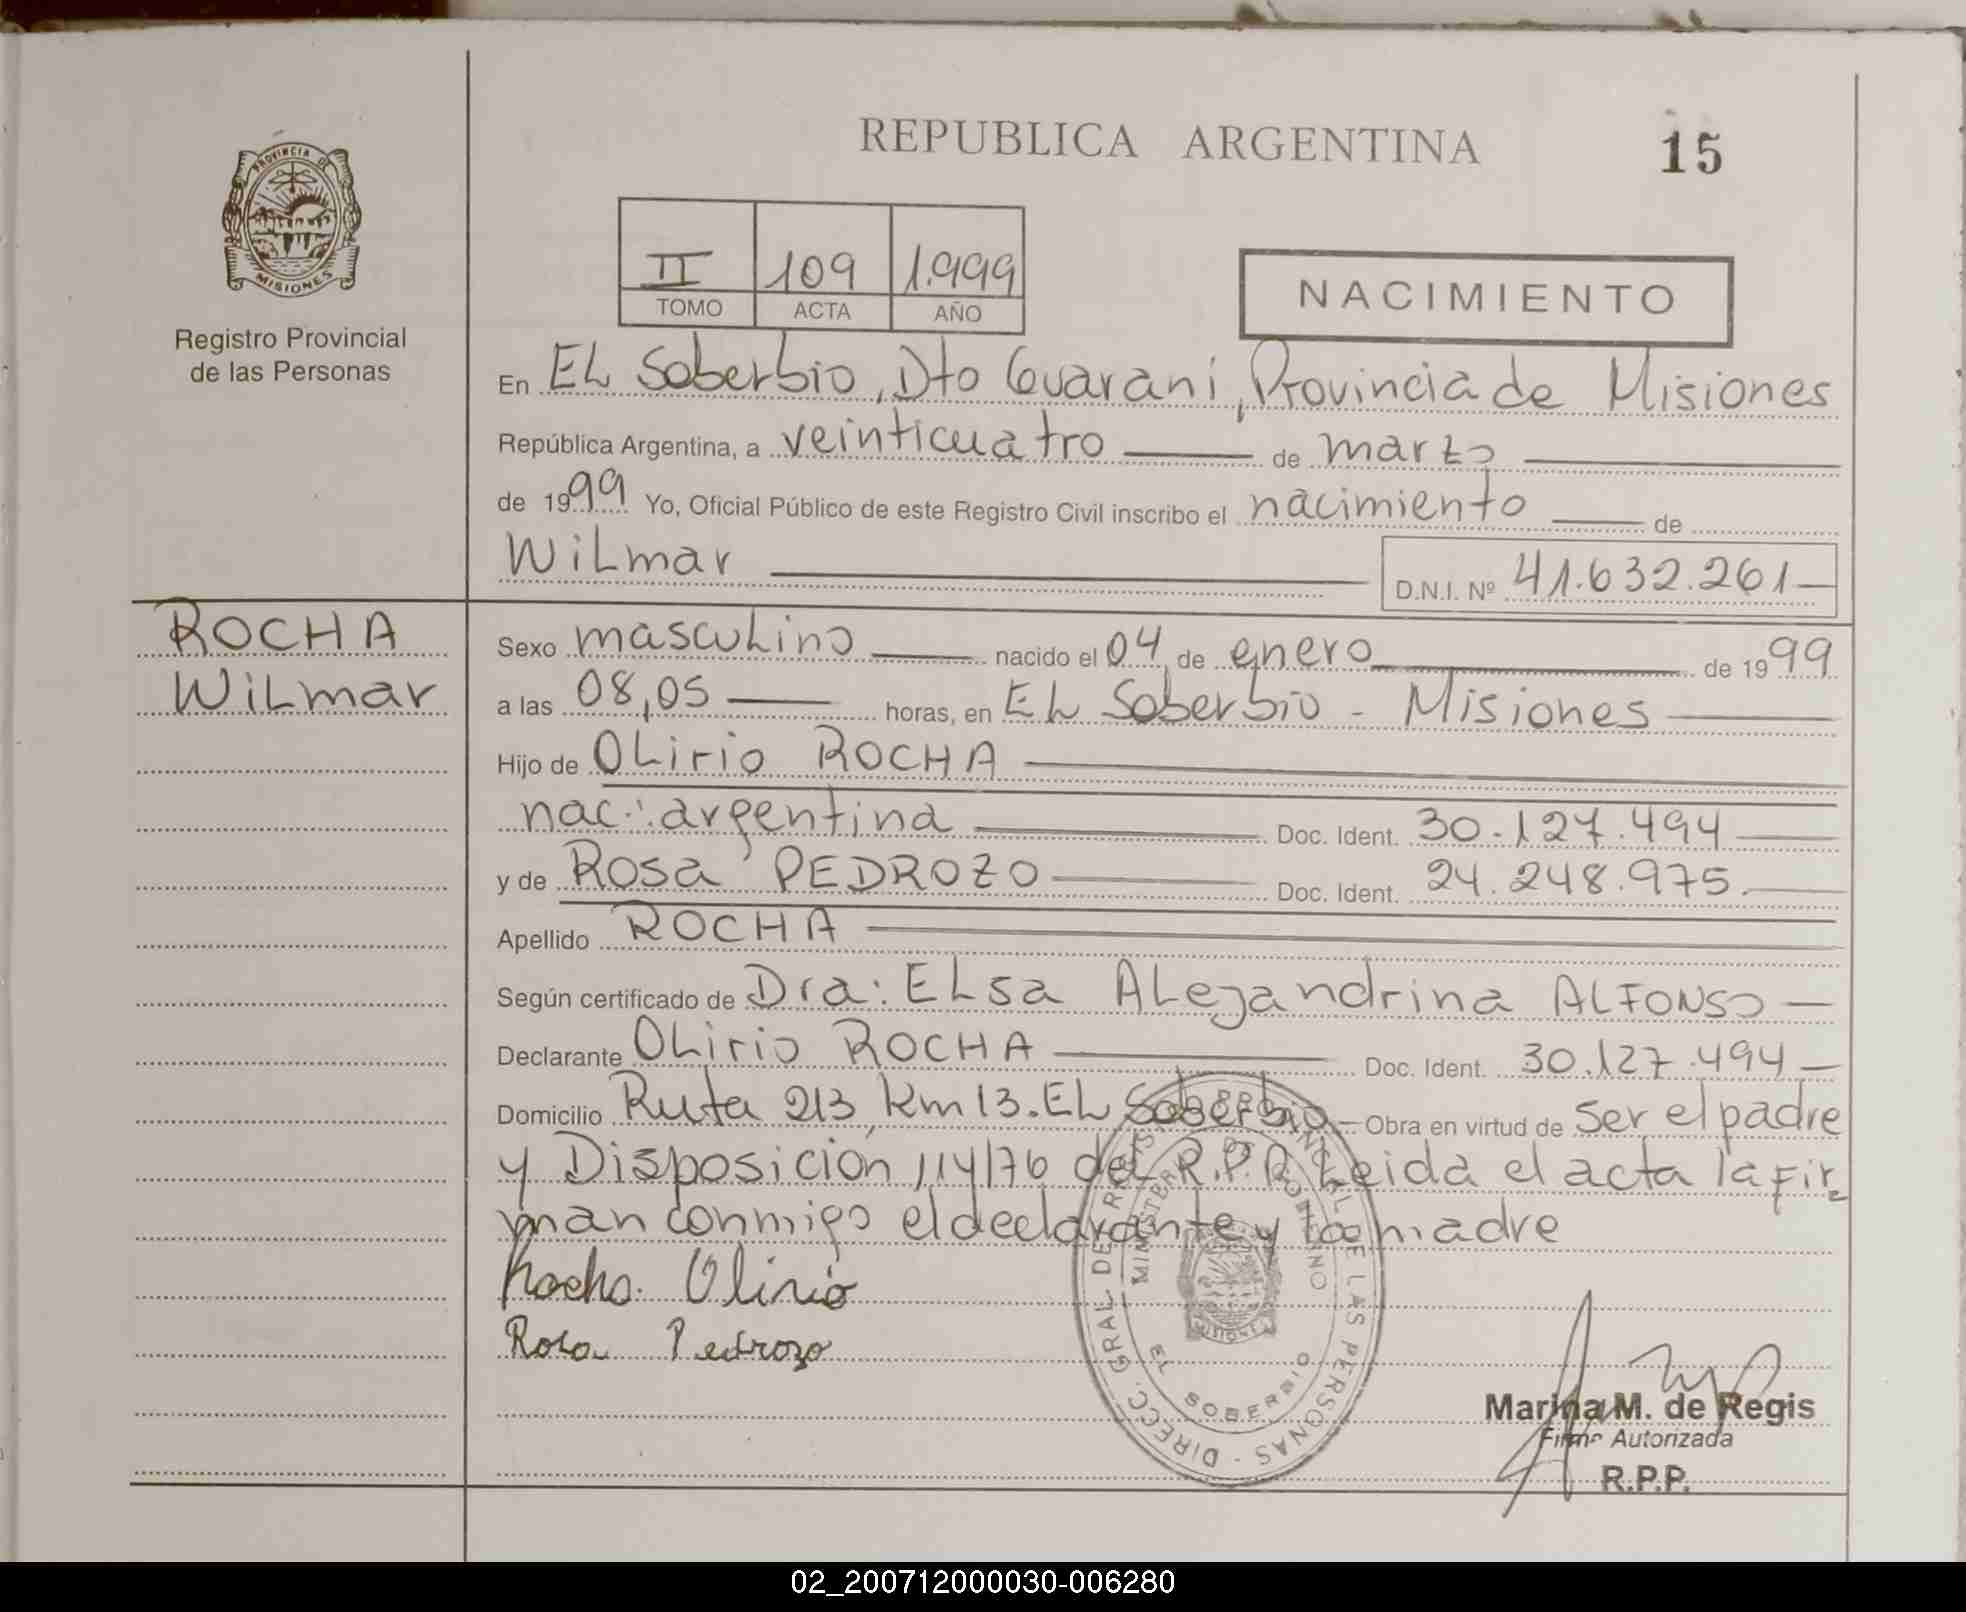 REPUBLICA ARGENTINA
15
PROVINCIA DE
MISIONES
Registro Provincial
de las Personas
II 109 1.999
TOMO ACTA AÑO
NACIMIENTO
En EL Soberbio, Dto Guaraní, Provincia de Misiones
República Argentina, a veinticuatro de marzo
de 1999 Yo, Oficial Público de este Registro Civil inscribo el nacimiento de
Wilmar D.N.I. Nº 41.632.261
ROCHA
Wilmar
Sexo masculino nacido el 04 de enero de 1999
a las 08,05 horas, en EL Soberbio - Misiones
Hijo de OLirio ROCHA
nac: argentina Doc. Ident. 30.127.494
y de Rosa PEDROZO Doc. Ident. 24.248.975.
Apellido ROCHA
Según certificado de Dra: ELsa ALejandrina ALFONSO
Declarante OLirio ROCHA Doc. Ident. 30.127.494
Domicilio Ruta 213 km 13. EL Soberbio Obra en virtud de ser el padre
y Disposición 114/76 del R.P.P. Leida el acta la fir
man conmigo el declarante y la madre
Rocha Olirio
Rosa Pedrozo
DIRECC. GRAL DE REGIS PROVINCIAL DE LAS PERSONAS -
MINISTERIO DE GOBIERNO
MISIONES
EL SOBERBIO
Marina M. de Regis
Firma Autorizada
R.P.P.
02_200712000030-006280